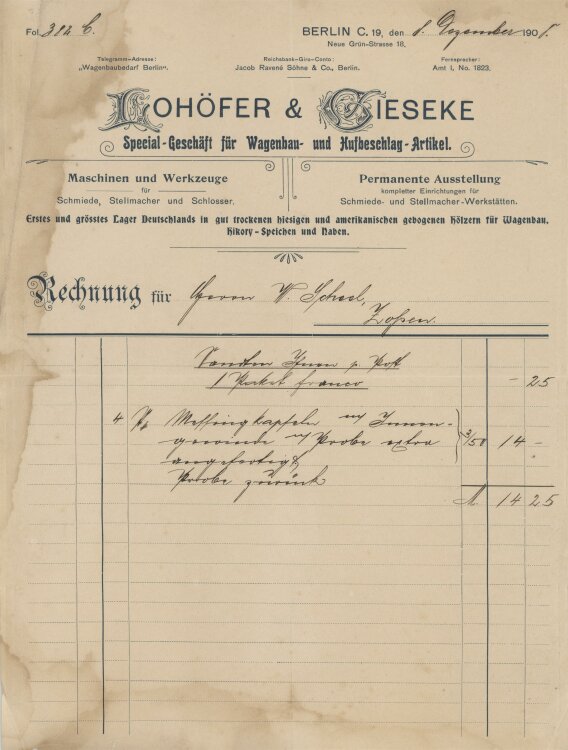 Fol. 382 C.
BERLIN C. 19, den 8. Dezember 190
Neue Grün-Strasse 18.
Telegramm-Adresse:
„Wagenbaubedarf Berlin“.
Reichsbank-Giro-Conto:
Jacob Ravené Söhne & Co., Berlin.
Fernsprecher:
Amt I, No. 1823.
LOHÖFER & GIESEKE
Special-Geschäft für Wagenbau- und Hufbeschlag-Artikel.
Maschinen und Werkzeuge
für
Schmiede, Stellmacher und Schlosser.
Permanente Ausstellung
kompletter Einrichtungen für
Schmiede- und Stellmacher-Werkstätten.
Erstes und grösstes Lager Deutschlands in gut trockenen hiesigen und amerikanischen gebogenen Hölzern für Wagenbau.
Hikory-Speichen und Naben.
Rechnung für Herrn W. Scheel,
Zossen.
Sandten Ihnen p. Post
1 Packet franco - 25
4 Messingkapseln m/ Innen-
gewinde n/ Probe extra 3/50 14 -
angefertigt
Probe zurück
M. 14 25